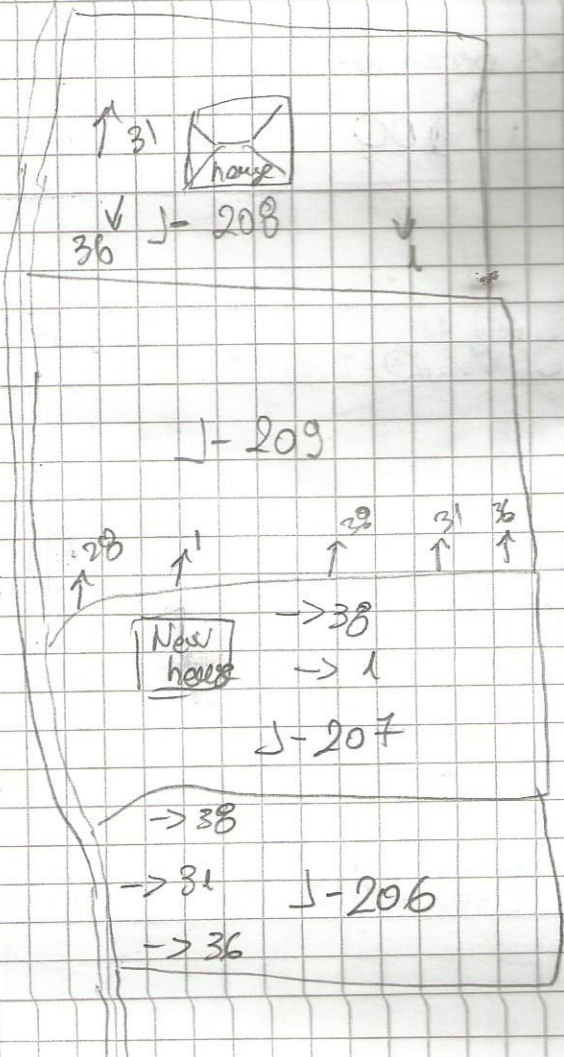 ↑ 31
house
↓ 36
J- 208
↓ 1
J- 209
↑ 28
↑ 1
↑ 38
↑ 31
↑ 36
New
house
-> 38
-> 1
J- 207
-> 38
-> 31
-> 36
J- 206